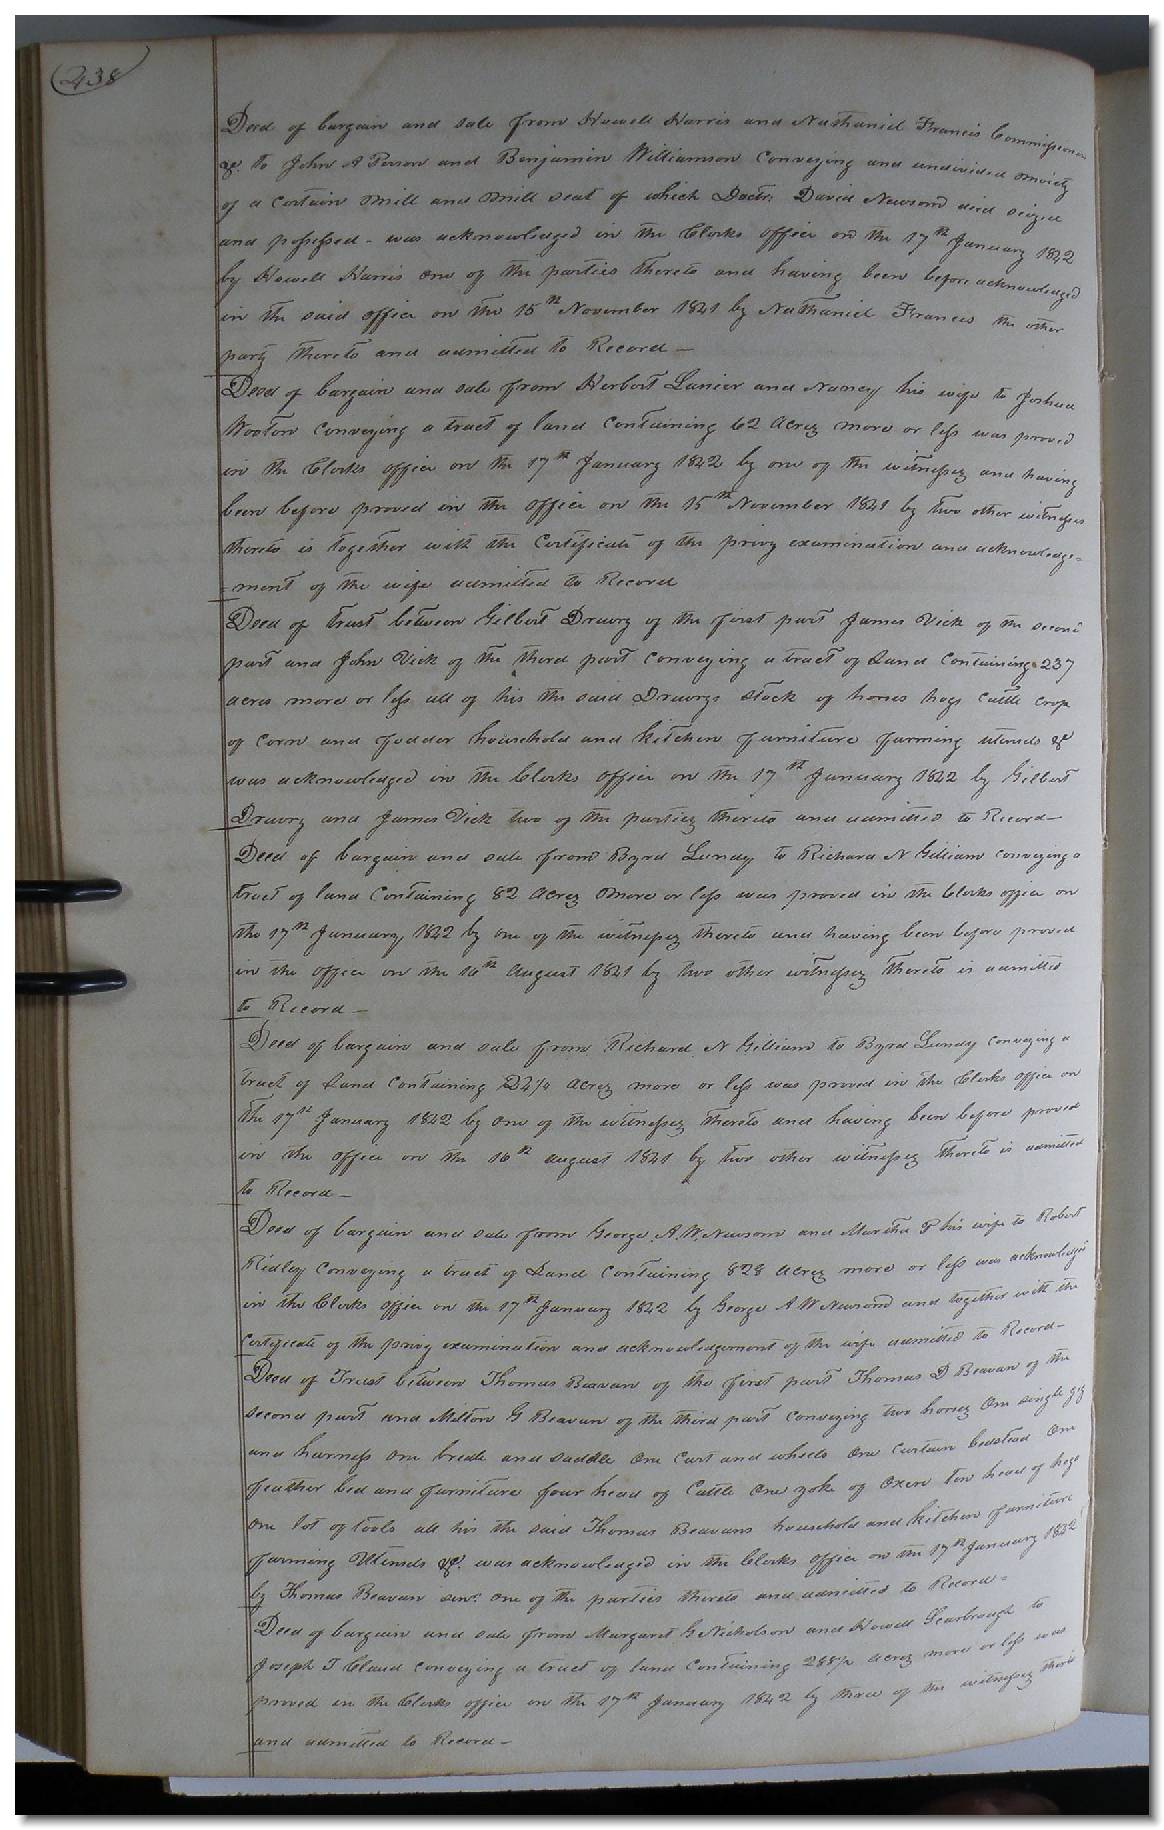 238
Deed of bargain and sale from Howell Harris and Nathaniel Francis Commissioners
&c. to John A Person and Benjamin Williamson Conveying and undivided moiety
of a Certain Mill and Mill seat of which Doctr. David Newsom died seized
and possessed - was acknowledged in the Clerks office on the 17th January 1842
by Howell Harris one of the parties thereto and having been before acknowledged
in the said office on the 15th November 1841 by Nathaniel Francis the other
party thereto and admitted to Record —
Deed of bargain and sale from Herbert Lanier and Nancy his wife to Joshua
Wooton Conveying a tract of land Containing 62 Acres more or less was proved
in the Clerks office on the 17th January 1842 by one of the witnesses and having
been before proved in the office on the 15th November 1841 by two other witnesses
thereto is together with the Certificate of the privy examination and acknowledge-
-ment of the wife admitted to Record
Deed of trust between Gilbert Drewry of the first part James Vick of the second
part and John Vick of the third part Conveying a tract of Land Containing 237
acres more or less all of his the said Drewrys stock of horses hogs Cattle crop
of Corn and fodder household and kitchen furniture farming utensils &c
was acknowledged in the Clerks office on the 17th January 1842 by Gilbert
Drewry and James Vick two of the parties thereto and admitted to Record —
Deed of bargain and sale from Byrd Lundy to Richard N Gilliam conveying a
tract of land Containing 82 Acres More or less was proved in the Clerks office on
the 17th January 1842 by one of the witnesses thereto and having been before proved
in the office on the 16th August 1841 by two other witnesses thereto is admitted
to Record —
Deed of bargain and sale from Richard N Gilliam to Byrd Lundy Conveying a
tract of Land Containing acres more or less was proved in the Clerks office on
the 17th January 1842 by One of the witnesses thereto and having been before proved
in the office on the 16th august 1841 by two other witnesses thereto is admitted
to Record —
Deed of bargain and sale from George A. W. Newsom and Martha P his wife to Robert
Ridley Conveying a tract of Land Containing 828 Acres more or less was acknowledged
in the Clerks office on the 17th January 1842 by George A W Newsom and together with the
Certificate of the privy examination and acknowledgement of the wife admitted to Record —
Deed of Trust between Thomas Beavan of the first part Thomas D Beavan of the
second part and Milton G Beavan of the third part Conveying two horses One single gig
and harness one bridle and saddle One Cart and wheels One curtain bedstead One
feather bed and furniture four head of Cattle One yoke of Oxen ten head of hogs
One lot of tools all his the said Thomas Beavans household and kitchen furniture
farming Utensils &c. was acknowledged in the Clerks office on the 17th January 1842
by Thomas Beavan senr. one of the parties thereto and admitted to Record —
Deed of bargain and sale from Margaret G Nicholson and Howell Scarbrough to
Joseph T Claud Conveying a tract of land Containing acres more or less was
proved in the Clerks office on the 17th January 1842 by three of the witnesses thereto
and admitted to Record —